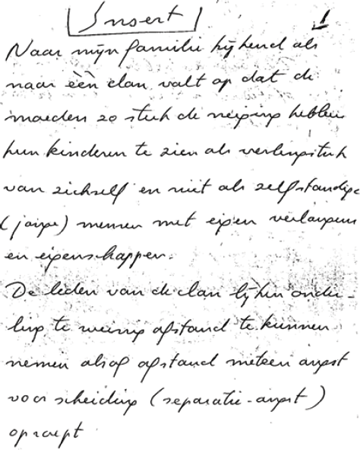 [Insert]
1
Naar mijn familie kijkend als
naar één clan, valt op dat de
moeders zo sterk de neiging hebben
hun kinderen te zien als verlengstuk
van zichzelf en niet als zelfstandige
(jonge) mensen met eigen verlangens
en eigenschappen.
De leden van de clan lijken onder-
ling te weinig afstand te kunnen
nemen alsof afstand meteen angst
voor scheiding (separatie-angst)
oproept